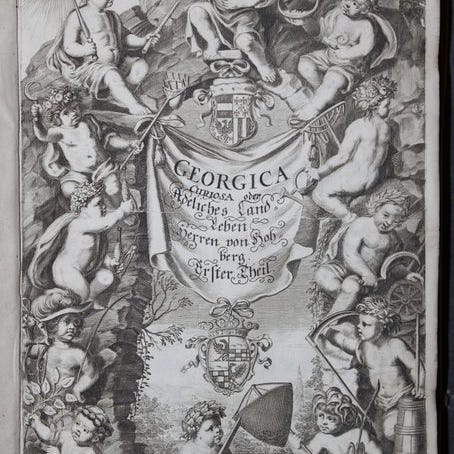 GEORGICA
CURIOSA oder
Adeliches Land
Leben
Herren von Hoh
berg
Erster Theil